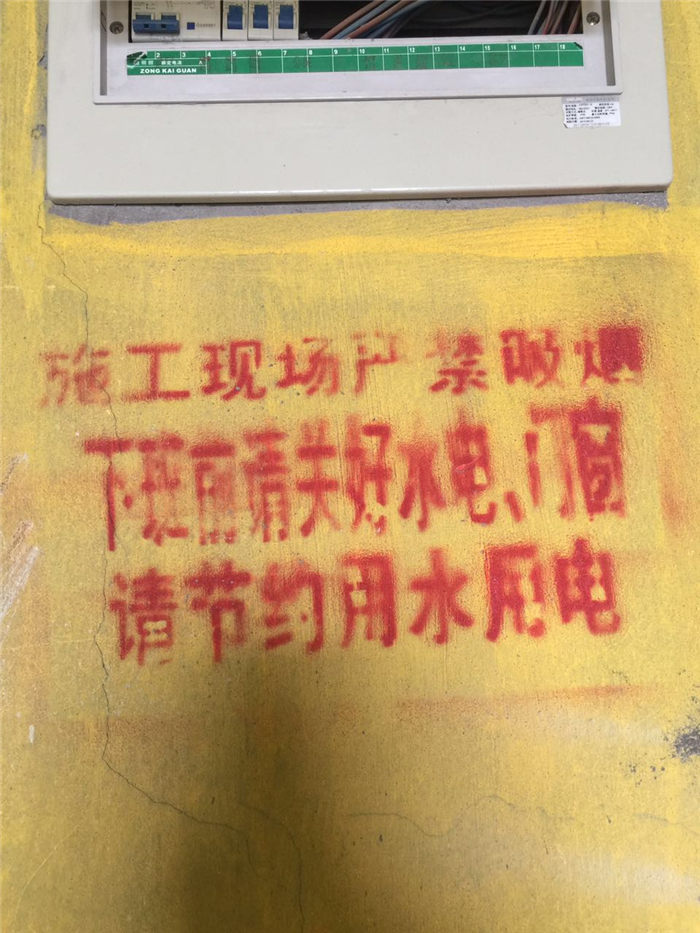 1 2 3 4 5 6 7 8 9 10 11 12 13 14 15 16 17 18
额定电流 A
ZONG KAI GUAN
施工现场严禁吸烟
下班前请关好水电、门窗
请节约用水用电